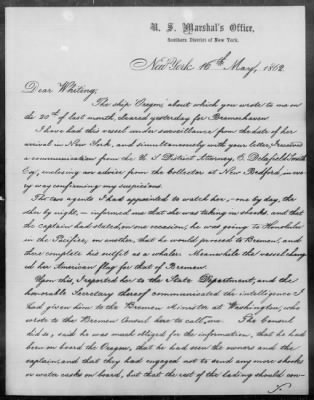 U. S. Marshal's Office,
Southern District of New York.
New York 16th May, 1862.
Dear Whiting;
The ship Oregon, about which you wrote to me on
the 20th of last month, cleared yesterday for Bremerhaven.
I have had this vessel under surveillance from the date of her
arrival in New York, and simultaneously with your letter, I received
a communication from the U S District Attorney, E. Delafield Smith
Esq, enclosing an advice from the Collector at New Bedford, in eve-
ry way confirming my suspicions.
The two agents I had appointed to watch her, - one by day, the
other by night, - informed me that she was taking in shooks, and that
the captain had stated, on one occasion, he was going to Honolulu
in the Pacific, on another, that he would proceed to Bremen, and
there complete his outfit as a whaler. Meanwhile the vessel chang-
ed her American flag for that of Bremen.
Upon this, I reported her to the State Department, and the
honorable Secretary thereof communicated the intelligence I
had given him to the Bremen Minister at Washington, who
wrote to the Bremen Consul here to call on me. The Consul
did so, said he was much obliged for the information, that he had
been on board the Oregon, that he had seen the owners and the
captain, and that they had engaged not to send any more shooks
or water casks on board, but that the rest of the lading should con-